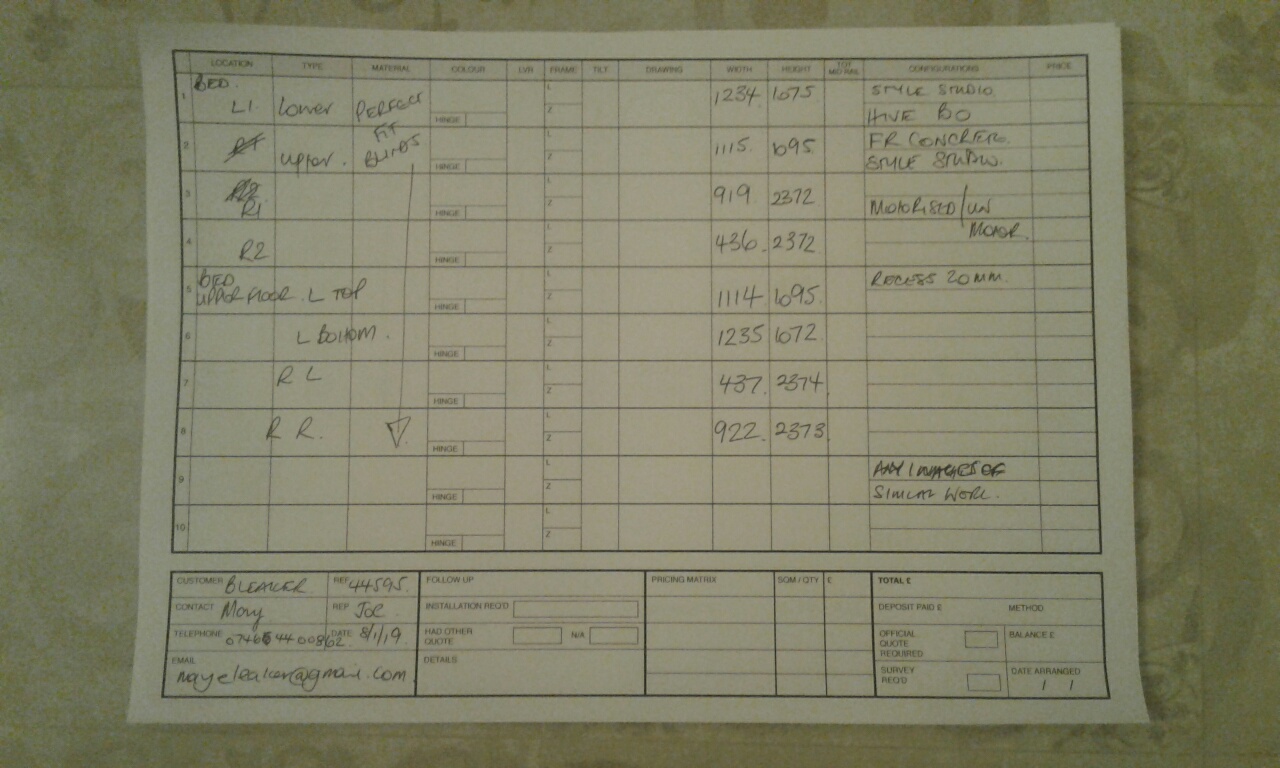 LOCATION TYPE MATERIAL COLOUR LVR FRAME TILT DRAWING WIDTH HEIGHT TOT MID RAIL CONFIGURATIONS PRICE
BED.
1 L1 Lower PERFECT L Z HINGE 1234 1075 STYLE STUDIO
HIVE BO
2 Upper. FIT BLINDS L Z HINGE 1115. 1095 FR CONCRETE
STYLE STUDIO.
3 R1 L Z HINGE 919 2372 MOTORISED/UN
MOTOR.
4 R2 L Z HINGE 436. 2372
BED
5 UPPER FLOOR. L TOP L Z HINGE 1114 1095. RECESS 20MM.
6 L BOTTOM. L Z HINGE 1235 1072
7 R L L Z HINGE 437. 2374
8 R R. L Z HINGE 922. 2373
9 L Z HINGE ANY IMAGES OF
SIMILAR WORK.
10 L Z HINGE
CUSTOMER REF 44595.
CONTACT Mary REP Joe
TELEPHONE DATE 8/1/19.
EMAIL
FOLLOW UP
INSTALLATION REQ'D
HAD OTHER QUOTE N/A
DETAILS
PRICING MATRIX SQM / QTY £
TOTAL £
DEPOSIT PAID £ METHOD
OFFICIAL QUOTE REQUIRED BALANCE £
SURVEY REQ'D DATE ARRANGED
/ /